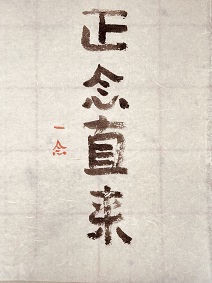 正念直来
一念